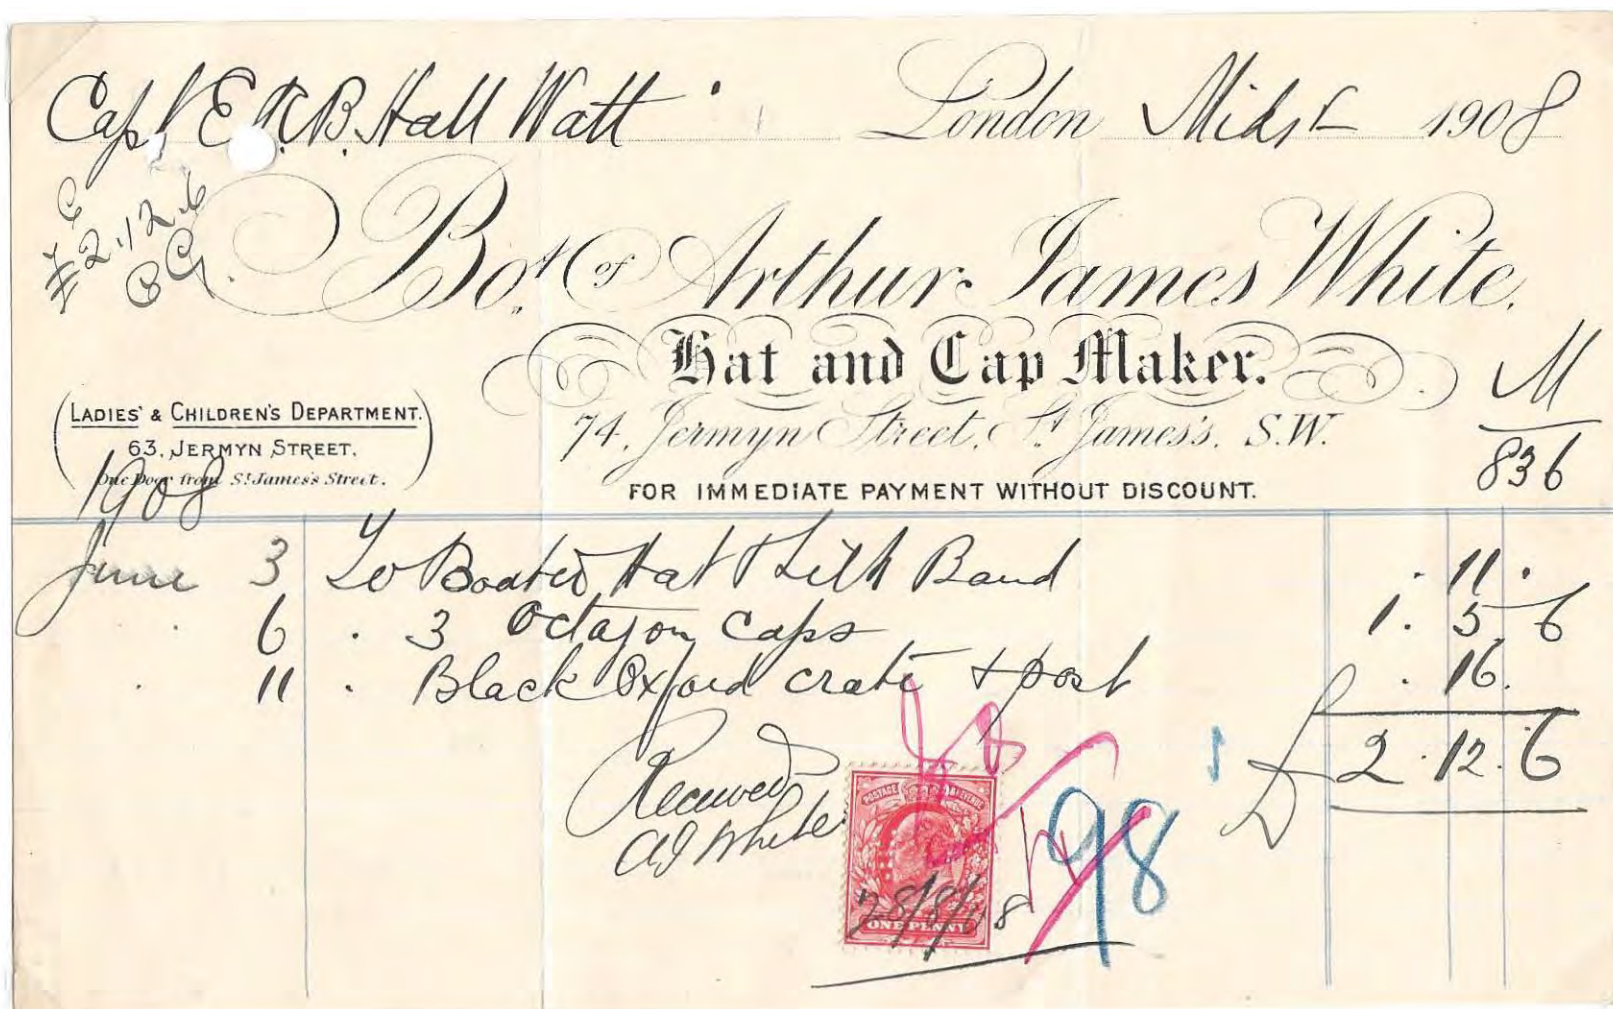 Capt E. R. B. Hall Watt London Midst 1908
£2.12.6
Bot. of Arthur James White.
Hat and Cap Maker.
M
836
LADIES' & CHILDREN'S DEPARTMENT.
63, JERMYN STREET.
One Door from St James's Street.
74, Jermyn Street, St James's, S.W.
FOR IMMEDIATE PAYMENT WITHOUT DISCOUNT.
1908
June 3 To Boater Hat & Silk Band . 11 .
. 6 . 3 Octagon Caps 1. 5. 6
. 11 . Black Oxford crate & post . 16.
£ 2. 12. 6
Received
A J White
POSTAGE REVENUE
28/8/08
ONE PENNY
98